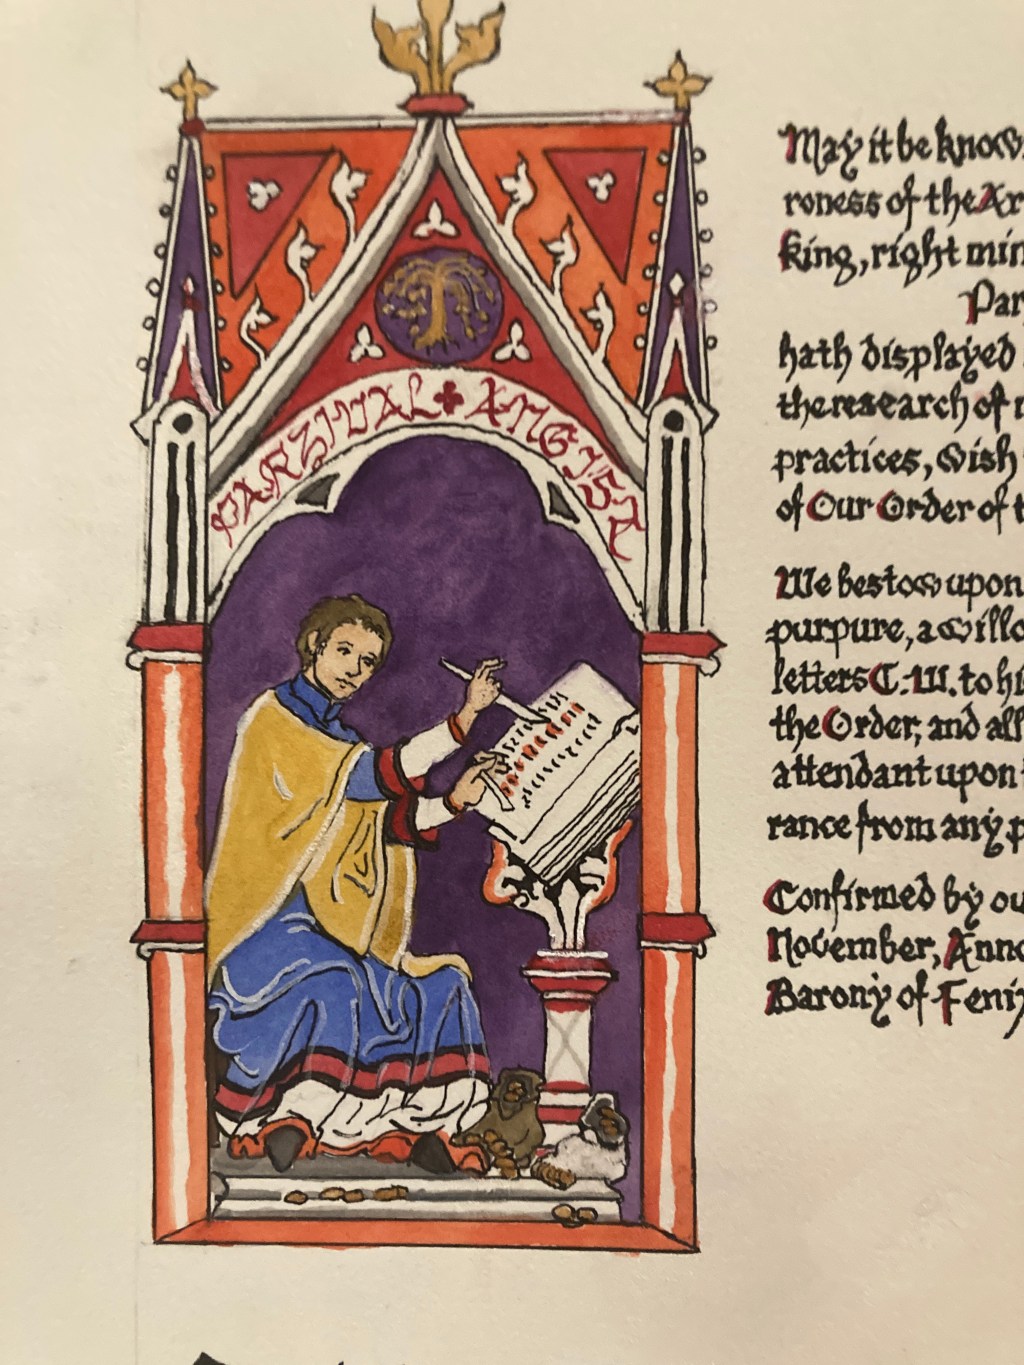 PARZIVAL ANGISA
May it be know
roness of the Ar
king, right min
Par
hath displayed
the research of
practices, wish
of Our Order of t
We bestow upon
purpure, a willo
letters C.III. to hi
the Order, and all
attendant upon
rance from any p
Confirmed by ou
November, Anno
Barony of Feni